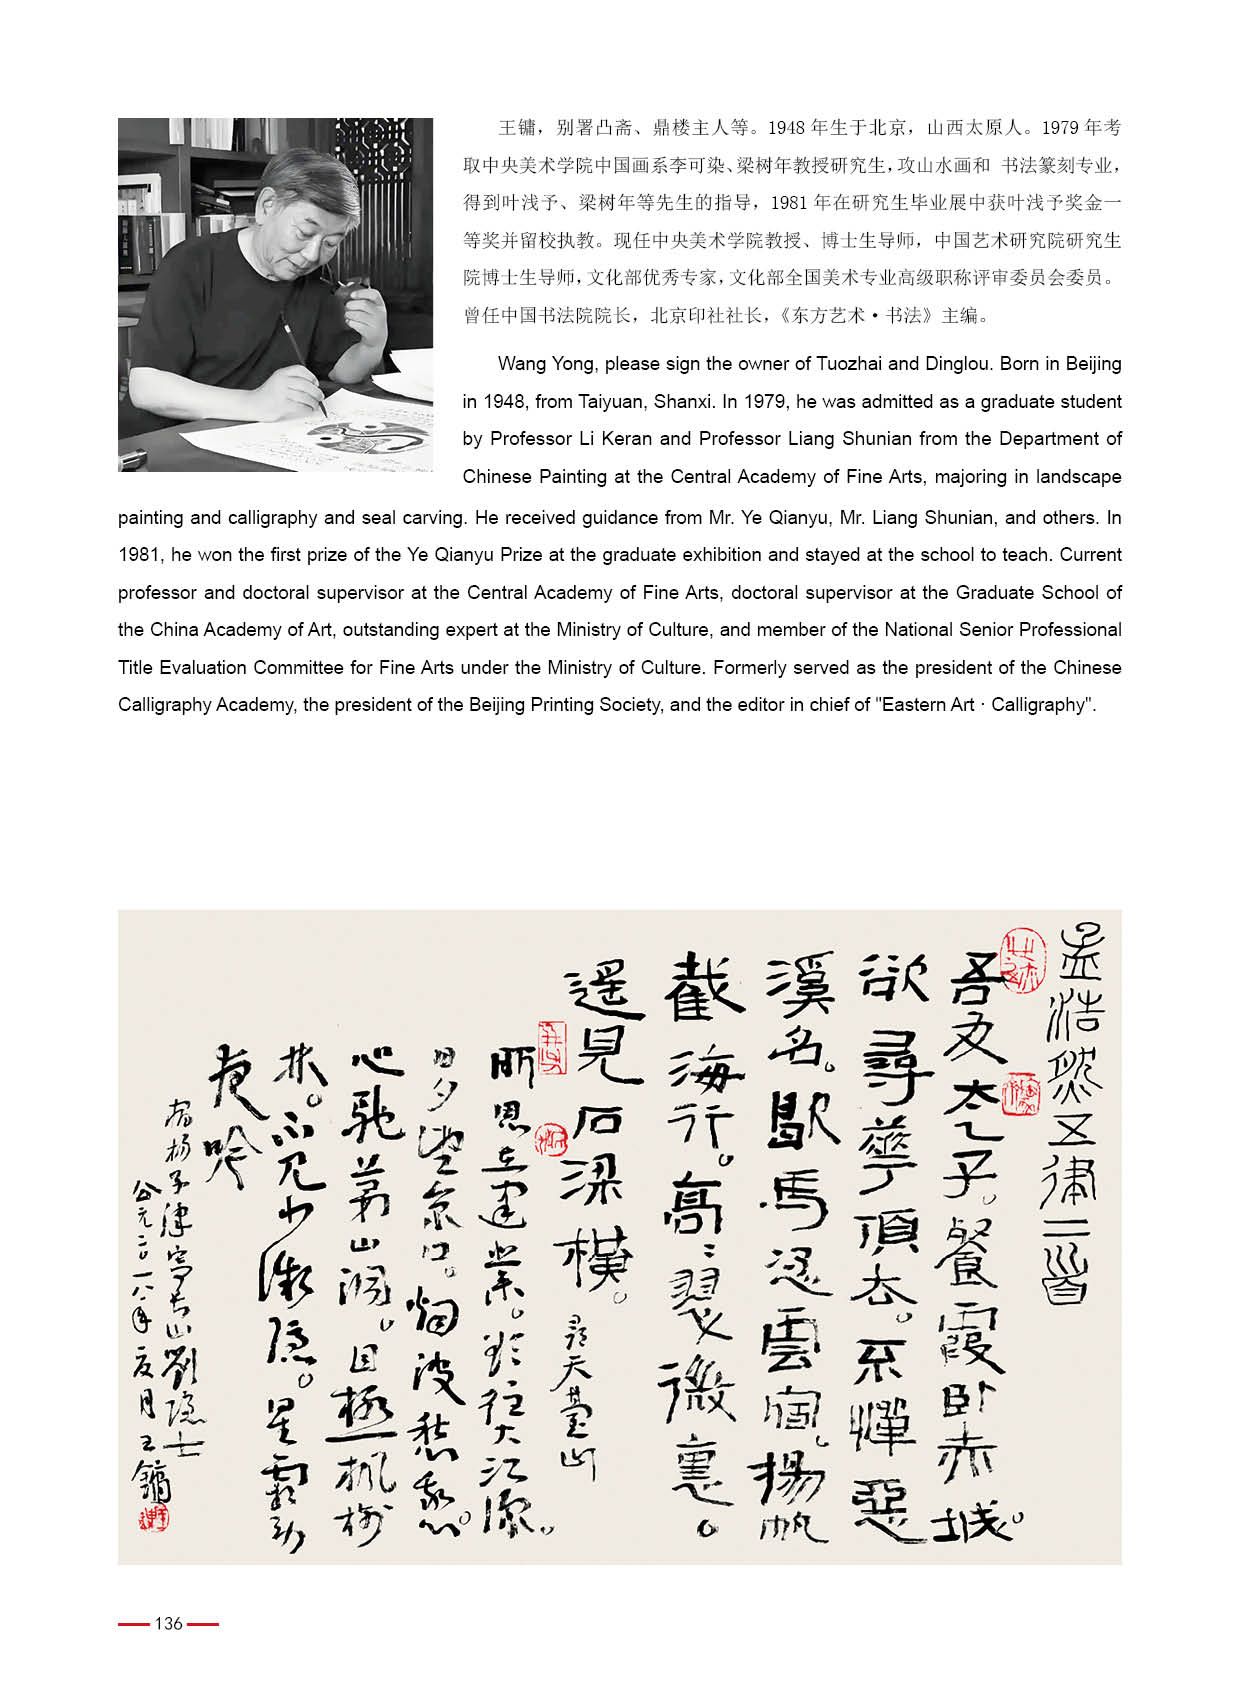 王镛，别署凸斋、鼎楼主人等。1948 年生于北京，山西太原人。1979 年考
取中央美术学院中国画系李可染、梁树年教授研究生，攻山水画和 书法篆刻专业，
得到叶浅予、梁树年等先生的指导，1981 年在研究生毕业展中获叶浅予奖金一
等奖并留校执教。现任中央美术学院教授、博士生导师，中国艺术研究院研究生
院博士生导师，文化部优秀专家，文化部全国美术专业高级职称评审委员会委员。
曾任中国书法院院长，北京印社社长，《东方艺术•书法》主编。
Wang Yong, please sign the owner of Tuozhai and Dinglou. Born in Beijing
in 1948, from Taiyuan, Shanxi. In 1979, he was admitted as a graduate student
by Professor Li Keran and Professor Liang Shunian from the Department of
Chinese Painting at the Central Academy of Fine Arts, majoring in landscape
painting and calligraphy and seal carving. He received guidance from Mr. Ye Qianyu, Mr. Liang Shunian, and others. In
1981, he won the first prize of the Ye Qianyu Prize at the graduate exhibition and stayed at the school to teach. Current
professor and doctoral supervisor at the Central Academy of Fine Arts, doctoral supervisor at the Graduate School of
the China Academy of Art, outstanding expert at the Ministry of Culture, and member of the National Senior Professional
Title Evaluation Committee for Fine Arts under the Ministry of Culture. Formerly served as the president of the Chinese
Calligraphy Academy, the president of the Beijing Printing Society, and the editor in chief of "Eastern Art · Calligraphy".
孟浩然五律二首
吾友太乙子。餐霞卧赤城。
欲尋華頂去。不憚惡
溪名。歇馬憑雲宿。揚帆
截海行。高〻翠微裏。
遥見石梁横。
尋天臺山
所思在建業。欲往大江深。
日夕望京口。烟波愁我心。
心馳茅山洞。目極楓樹
林。不見少微隐。星霜勞
夜吟
宿揚子津寄長山劉隐士
公元二〇一八年夏月王鏞
136